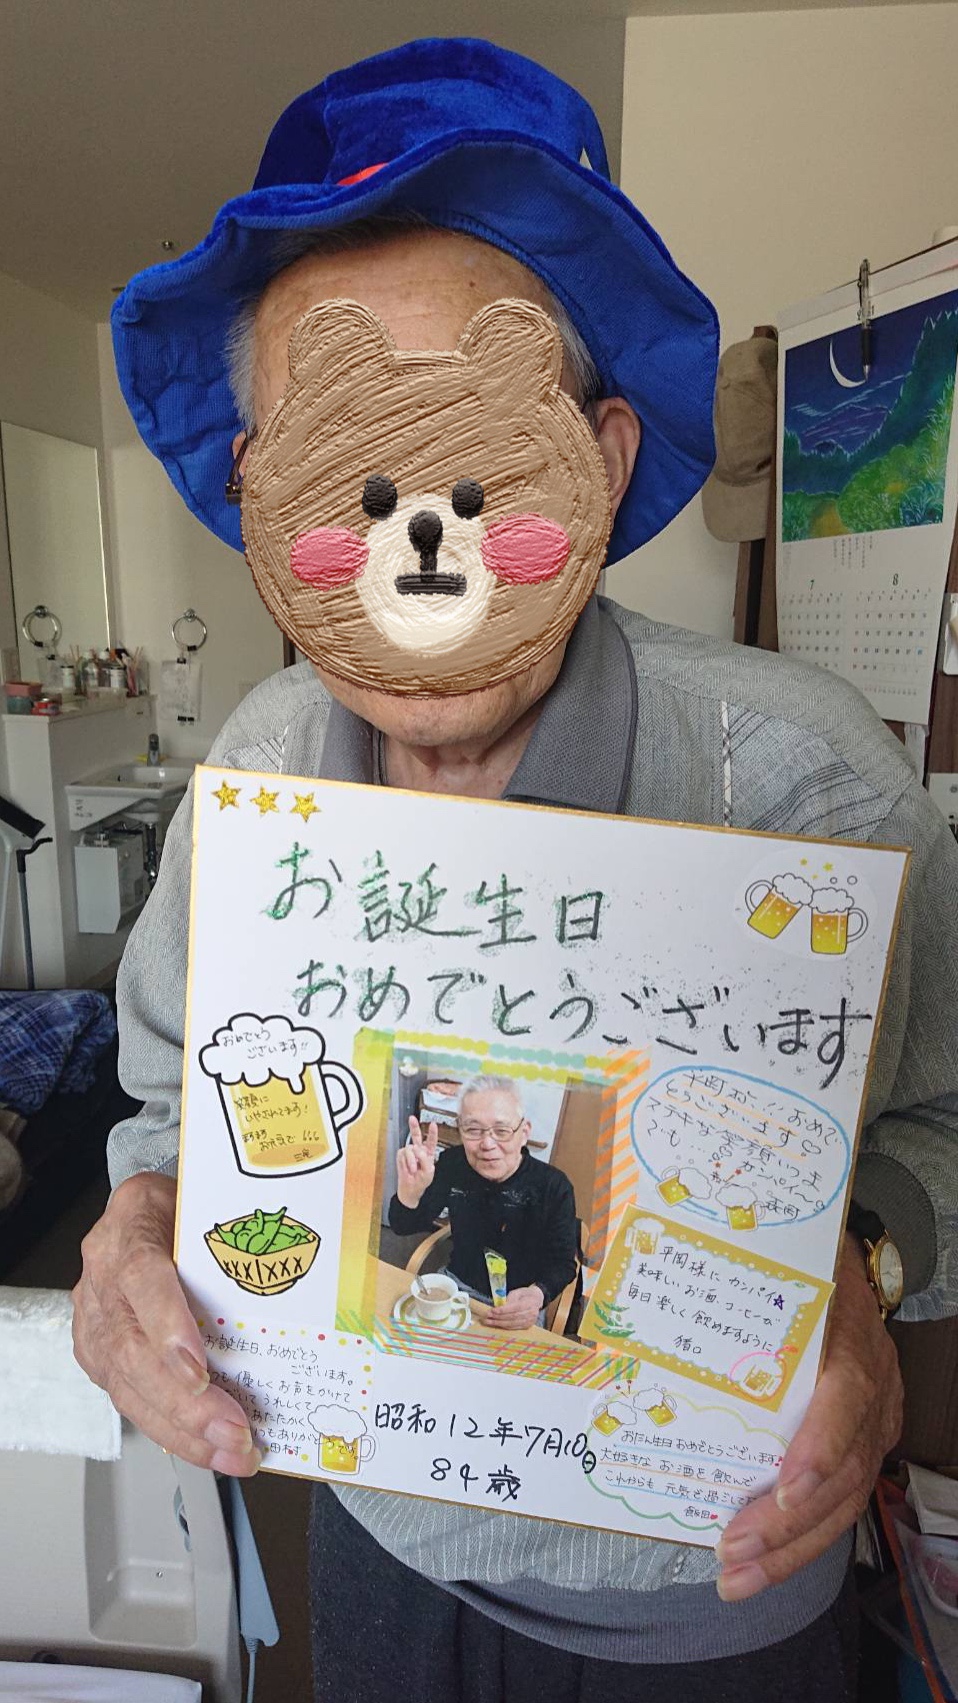 お誕生日
おめでとうございます
おめでとう
ございます!!
笑顔に
いやされてます!
お元気で
おめで
とうございます
ステキな笑顔いつま
でも
カンパイ〜
平岡様に カンパイ
美味しいお酒、コーヒーが
毎日楽しく飲めますように
猪口
お誕生日、おめでとう
ございます。
つも優しくお声をかけて
だいてうれしくて
あたたかく
いつもありがとうです。
田村
昭和12年7月10日
84歳
おたん生日おめでとうございます!
大好きな お酒を飲んで
これからも 元気で過ごして
飯田
7
8